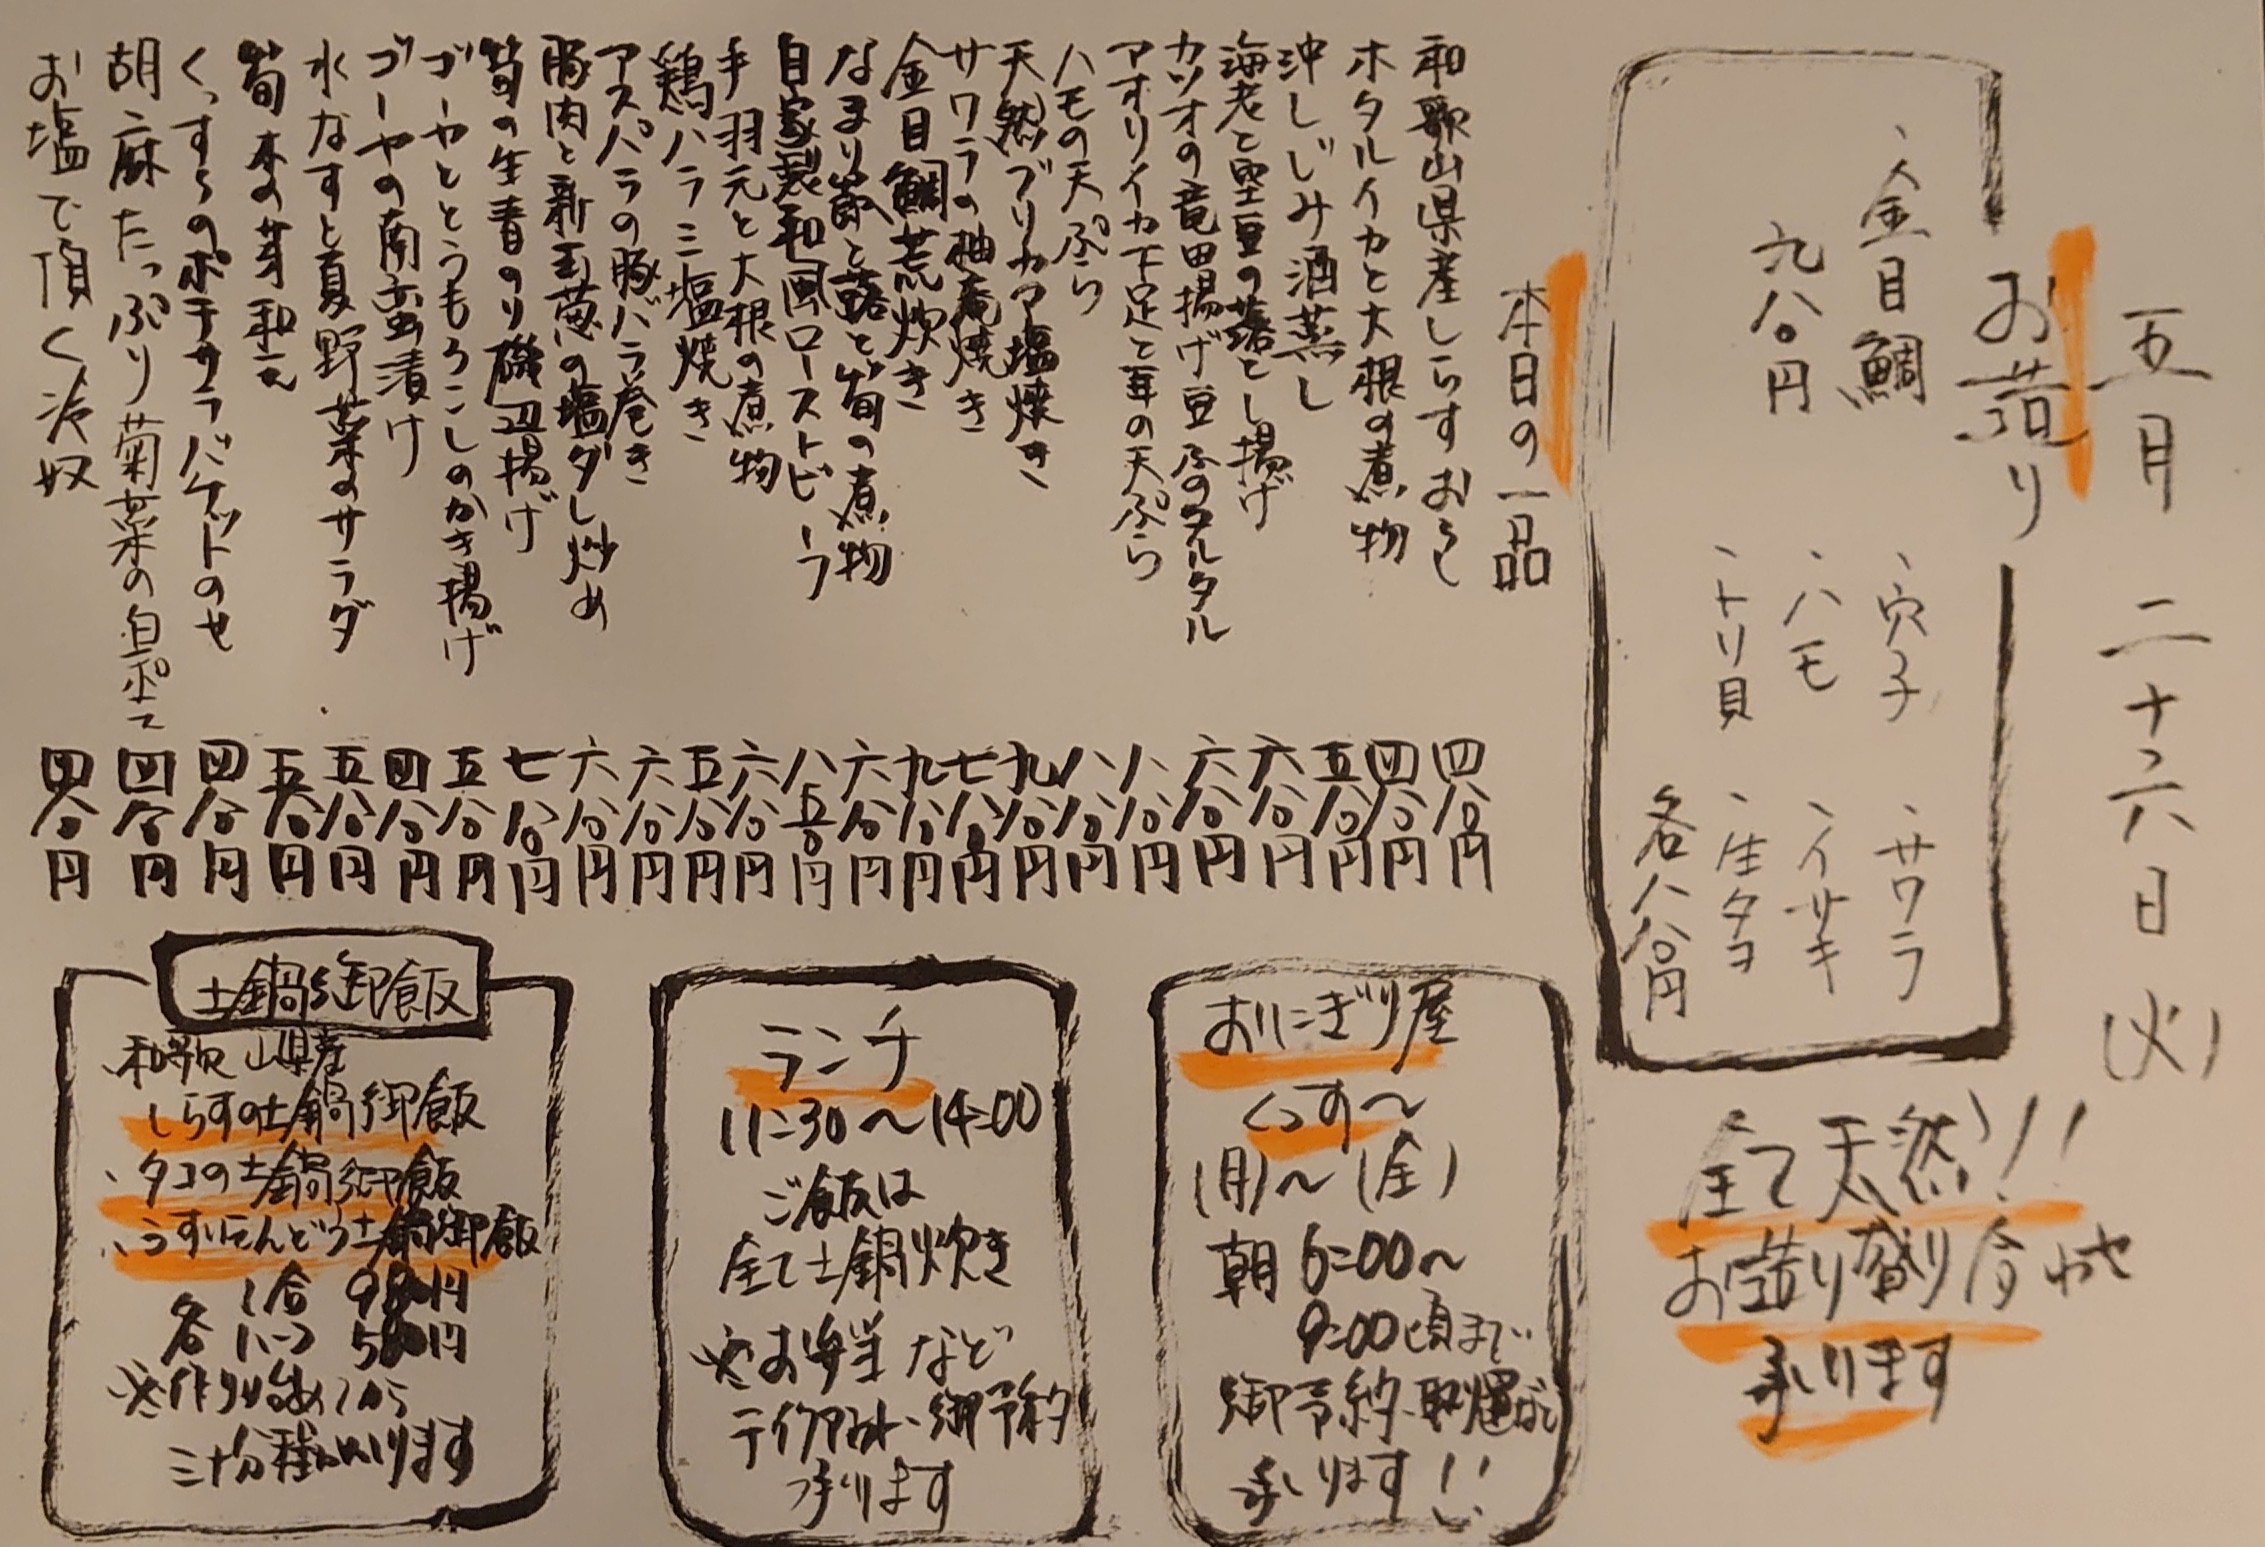 五月二十六日(火)
お造り
、金目鯛
九八〇円
、穴子
、ハモ
、トリ貝
、サワラ
、イサキ
、生タコ
各八八〇円
全て天然!!
お造り盛り合わせ
承ります
本日の一品
和歌山県産しらすおろし 四八〇円
ホタルイカと大根の煮物 四八〇円
沖しじみ酒蒸し 五八〇円
海老と空豆の落とし揚げ 六八〇円
カツオの竜田揚げ豆ふのタルタル 六八〇円
アオリイカ下足と茸の天ぷら 八八〇円
ハモの天ぷら 八八〇円
天然ブリカマ塩焼き 九八〇円
サワラの柚庵焼き 七八〇円
金目鯛荒炊き 九八〇円
なまり節と蕗と筍の煮物 六八〇円
自家製和風ローストビーフ 八五〇円
手羽元と大根の煮物 六八〇円
鶏ハラミ塩焼き 五八〇円
アスパラの豚バラ巻き 六八〇円
豚肉と新玉葱の塩ダレ炒め 六八〇円
筍の生青のり磯辺揚げ 七八〇円
ゴーヤととうもろこしのかき揚げ 五八〇円
ゴーヤの南蛮漬け 四八〇円
水なすと夏野菜のサラダ 五八〇円
筍木の芽和え 五八〇円
くっすうのポテサラバケットのせ 四八〇円
胡麻たっぷり菊菜の白和え 四八〇円
お塩で頂く冷奴 四八〇円
おにぎり屋
くっす〜
(月)〜(金)
朝6:00〜
9:00頃まで
御予約、取置き
承ります!!
ランチ
11:30〜14:00
ご飯は
全て土鍋炊き
※お弁当など
テイクアウト、御予約
承ります
土鍋御飯
、和歌山県産
しらすの土鍋御飯
、タコの土鍋御飯
、うすいえんどう土鍋御飯
各 1合 980円
1/2 580円
※作り始めてから
三十分程かかります